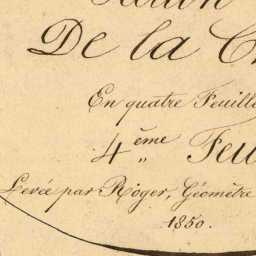 De la C
En quatre Feuille
4ème Feu
Levée par Roger, Géomètre
1850.